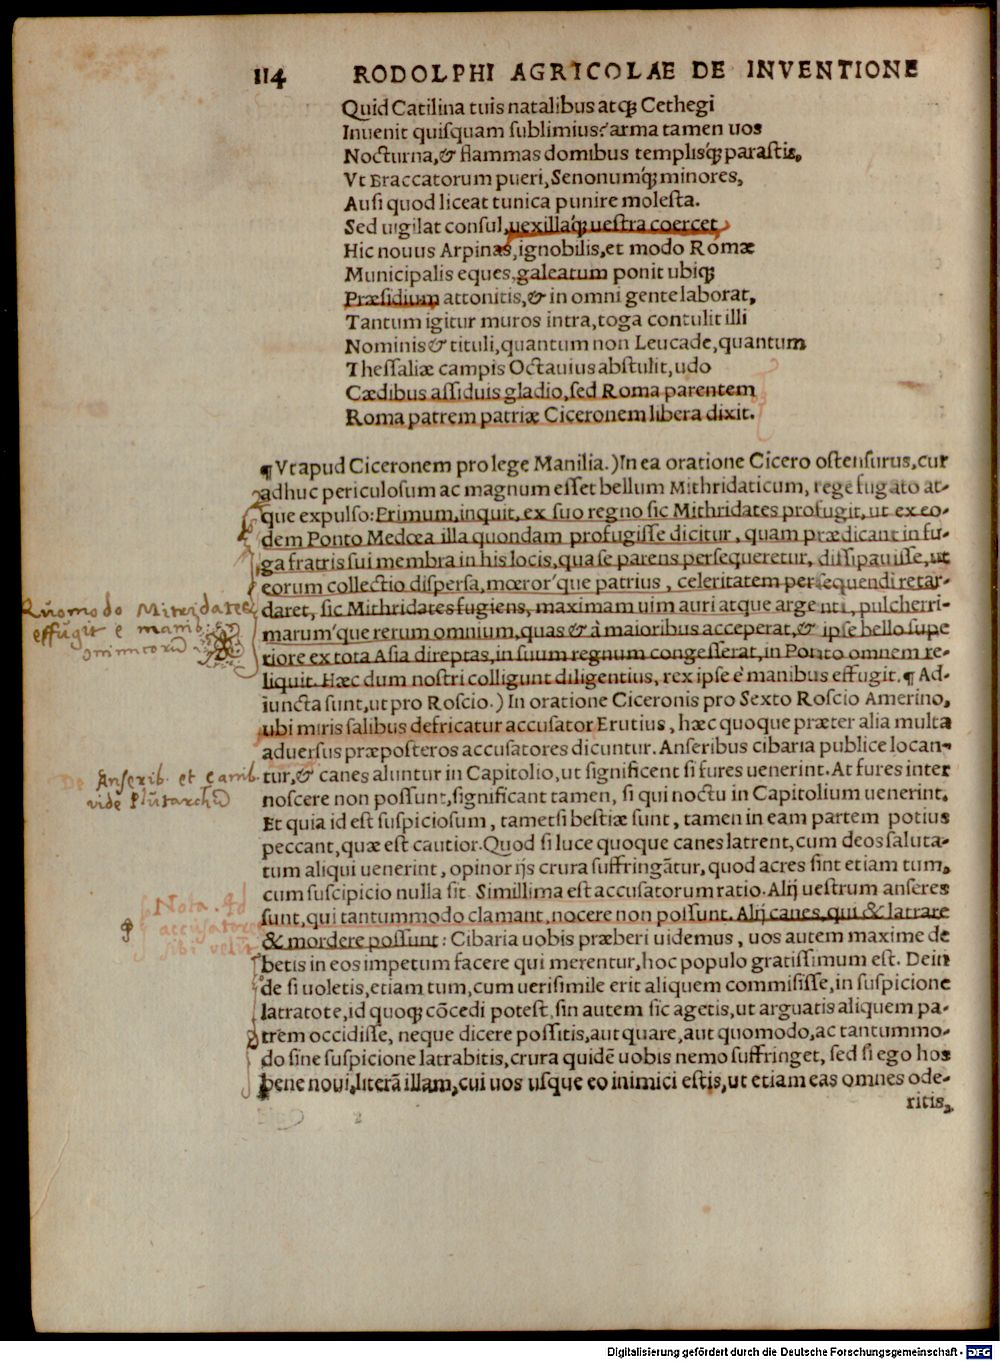 114 RODOLPHI AGRICOLAE DE INVENTIONE
Quid Catilina tuis natalibus atq; Cethegi
Inuenit quisquam sublimius? arma tamen uos
Nocturna, & flammas domibus templisq́; parastis,
Vt Braccatorum pueri, Senonumq́; minores,
Ausi quod liceat tunica punire molesta.
Sed uigilat consul, uexillaq́; uestra coercet
Hic nouus Arpinas, ignobilis, et modo Romæ
Municipalis eques, galeatum ponit ubiq;
Præsidium attonitis, & in omni gente laborat,
Tantum igitur muros intra, toga contulit illi
Nominis & tituli, quantum non Leucade, quantum
Thessaliæ campis Octauius abstulit, udo
Cædibus assiduis gladio, sed Roma parentem
Roma patrem patriæ Ciceronem libera dixit.
¶ Vt apud Ciceronem pro lege Manilia.) In ea oratione Cicero ostensurus, cur
adhuc periculosum ac magnum esset bellum Mithridaticum, rege fugato at-
que expulso: Primum, inquit, ex suo regno sic Mithridates profugit, ut ex eo-
dem Ponto Medœa illa quondam profugisse dicitur, quam prædicant in fu-
ga fratris sui membra in his locis, qua se parens persequeretur, dissipauisse, ut
eorum collectio dispersa, mœror'que patrius, celeritatem persequendi retar-
daret, sic Mithridates fugiens, maximam uim auri atque argenti, pulcherri-
marum'que rerum omnium, quas & à maioribus acceperat, & ipse bello supe
riore ex tota Asia direptas, in suum regnum congesserat, in Ponto omnem re-
liquit. Hæc dum nostri colligunt diligentius, rex ipse è manibus effugit. ¶ Ad-
iuncta sunt, ut pro Roscio.) In oratione Ciceronis pro Sexto Roscio Amerino,
ubi miris salibus defricatur accusator Erutius, hæc quoque præter alia multa
aduersus præposteros accusatores dicuntur. Anseribus cibaria publice locan-
tur, & canes aluntur in Capitolio, ut significent si fures uenerint. At fures inter
noscere non possunt, significant tamen, si qui noctu in Capitolium uenerint.
Et quia id est suspiciosum, tametsi bestiæ sunt, tamen in eam partem potius
peccant, quæ est cautior. Quod si luce quoque canes latrent, cum deos saluta-
tum aliqui uenerint, opinor ijs crura suffringãtur, quod acres sint etiam tum,
cum suscipicio nulla sit. Simillima est accusatorum ratio. Alij uestrum anseres
sunt, qui tantummodo clamant, nocere non possunt. Alij canes, qui & latrare
& mordere possunt: Cibaria uobis præberi uidemus, uos autem maxime de
betis in eos impetum facere qui merentur, hoc populo gratissimum est. Dein
de si uoletis, etiam tum, cum uerisimile erit aliquem commisisse, in suspicione
latratote, id quoq; cõcedi potest, sin autem sic agetis, ut arguatis aliquem pa-
trem occidisse, neque dicere possitis, aut quare, aut quomodo, ac tantummo-
do sine suspicione latrabitis, crura quidẽ uobis nemo suffringet, sed si ego hos
bene noui, literã illam, cui uos usque eo inimici estis, ut etiam eas omnes ode-
ritis,
Quomodo Mitridates
effugit e manib.
De Anserib. et Canib.
vide Plutarchũ
Nota. Ad
accusatores
sibi
Digitalisierung gefördert durch die Deutsche Forschungsgemeinschaft - DFG